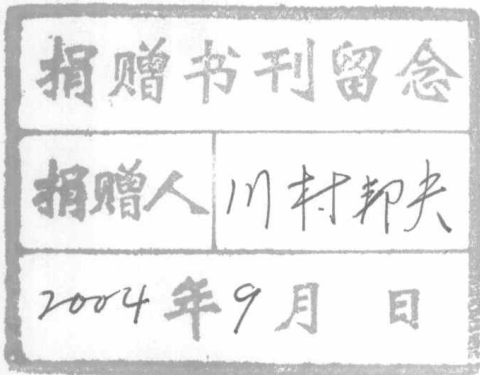 捐赠书刊留念
捐赠人 川村邦夫
2004年9月 日